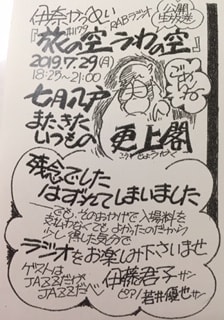 伊奈かっぺい
RABラジオ
公開生放送
『旅の空うわの空』
2019.7.29(月)
18:25〜21:00
ごめんね
七月八戸
またきた
いつもの
更上閣
こうじょうかく
残念でした
はずれてしまいました
でも、そのおかげで入場料を
支払わなくてもよかったのだから
少し得した気分で
ラジオをお楽しみ下さいませ
ゲストは
JAZZだけが
JAZZだべ
伊藤君子サン
ピアノ 若井優也サン